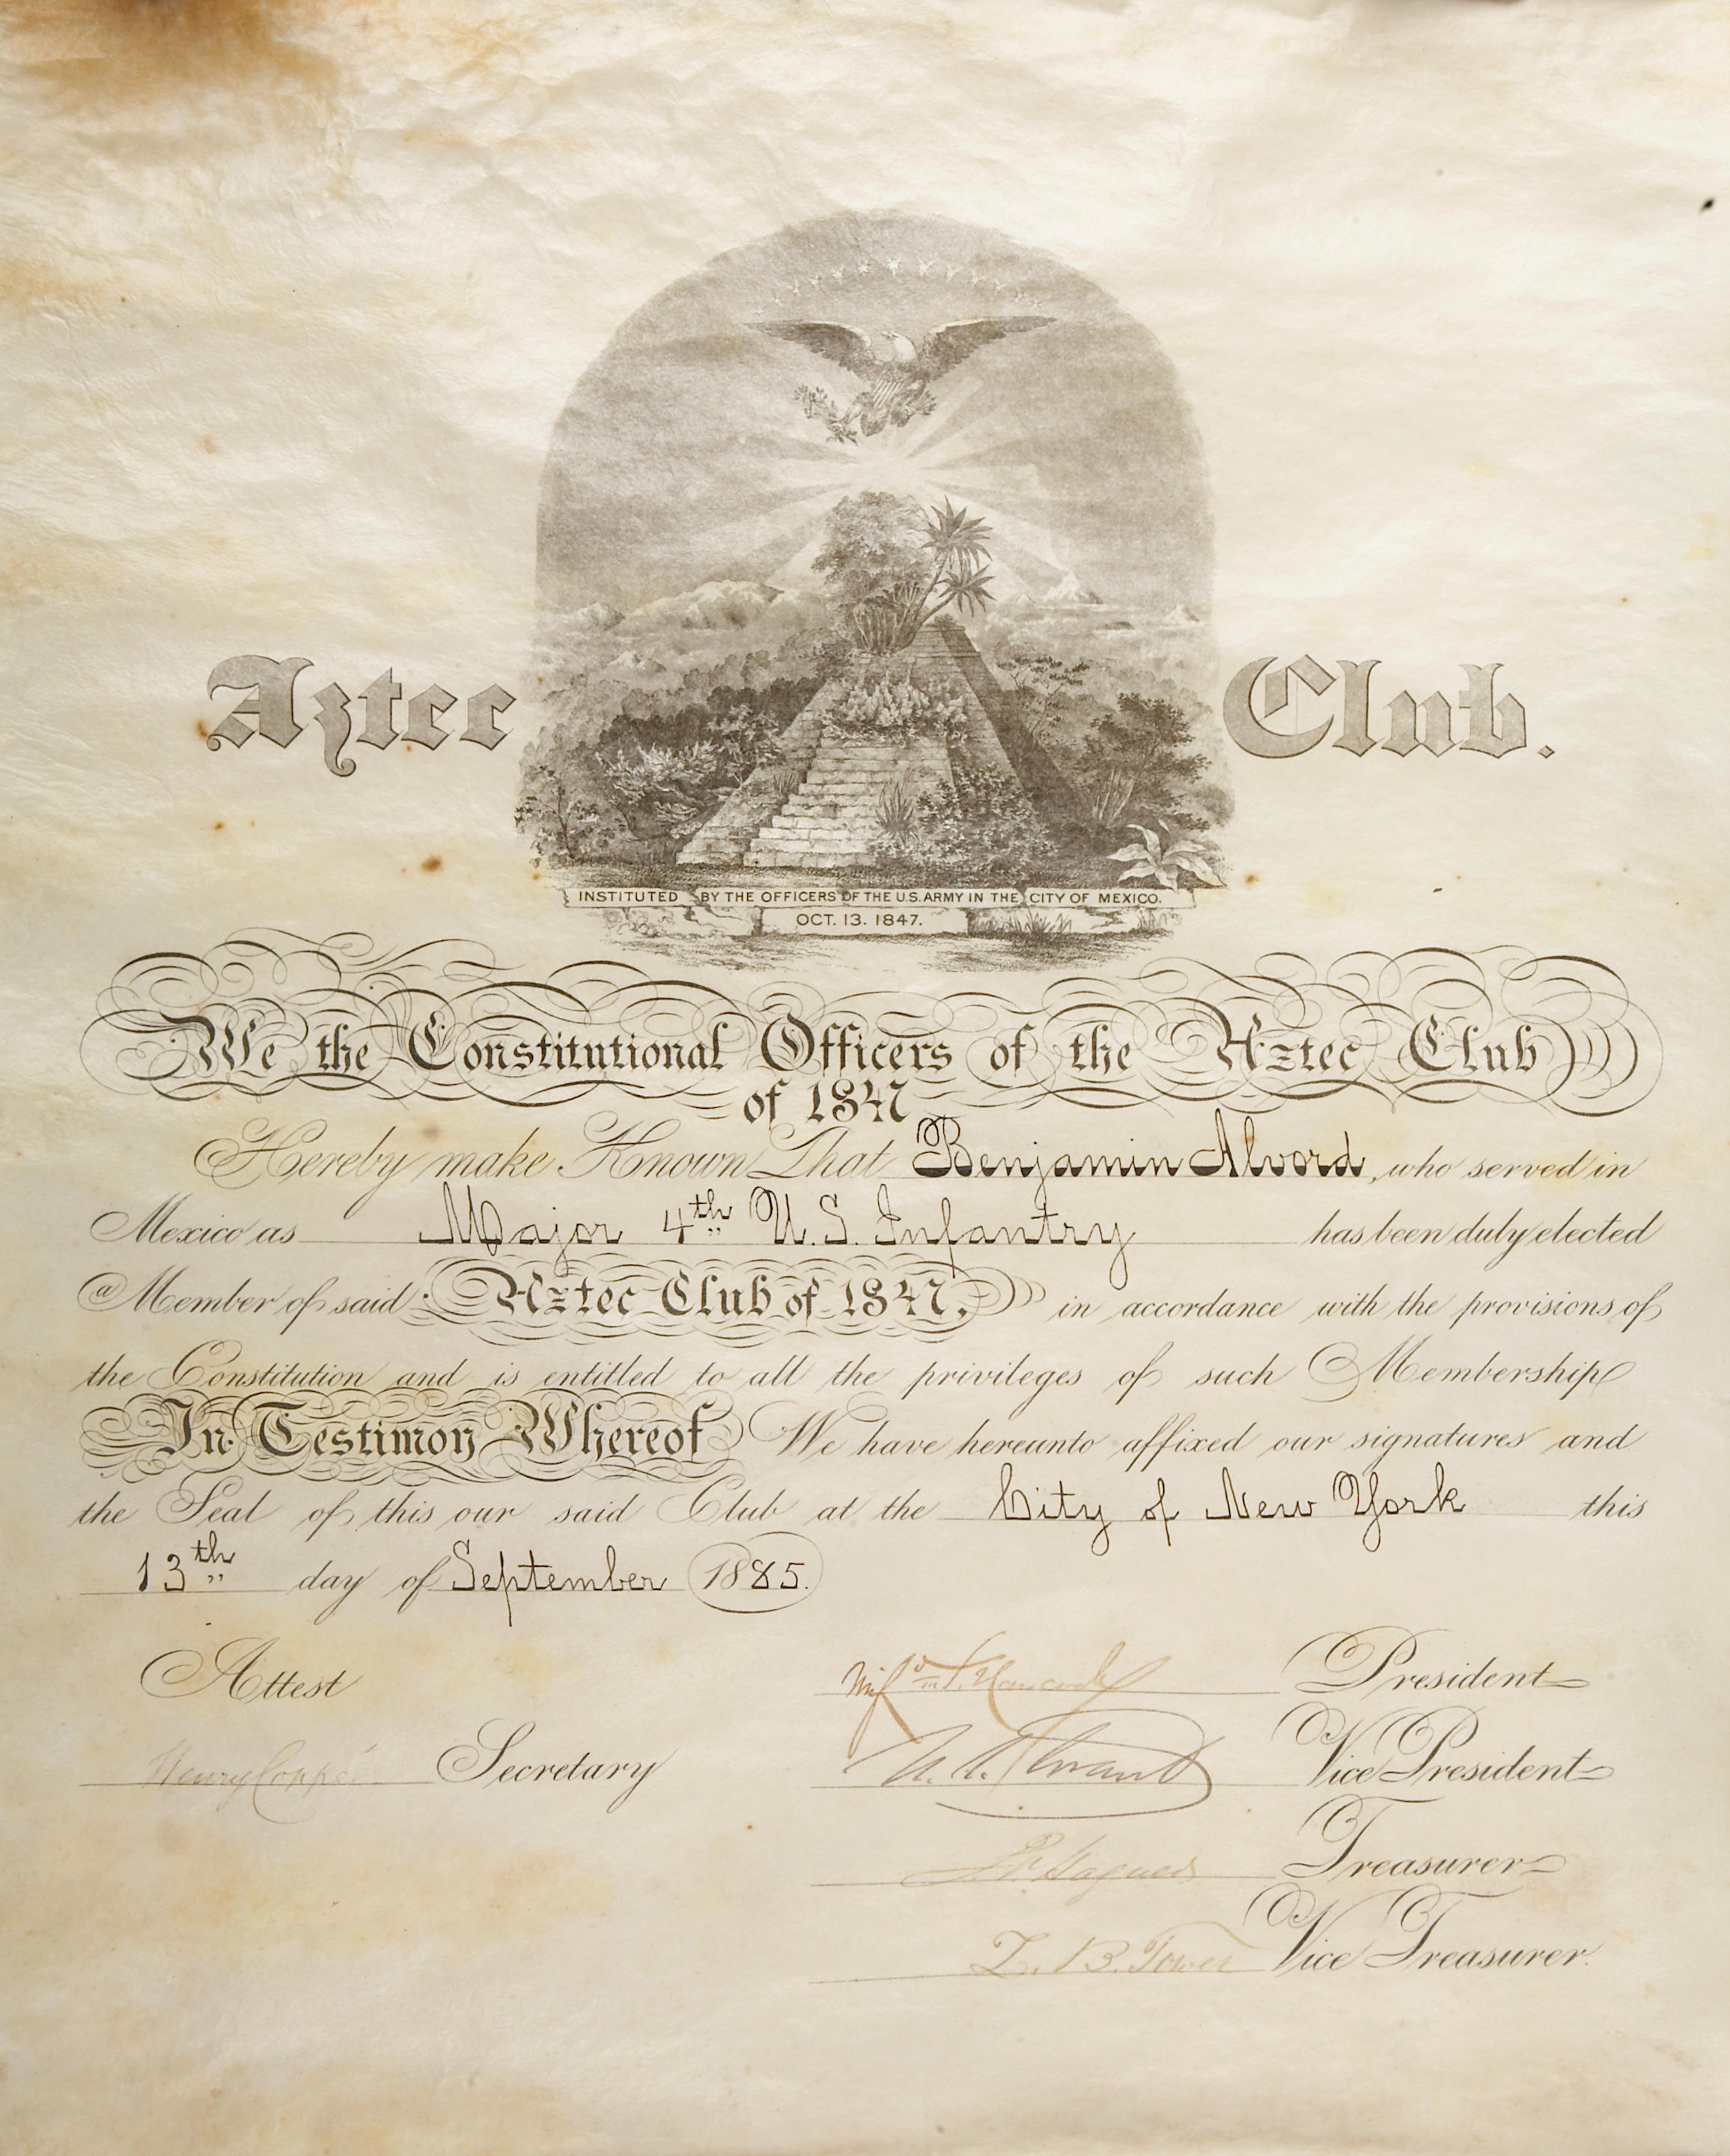 Aztec Club.
INSTITUTED BY THE OFFICERS OF THE U.S. ARMY IN THE CITY OF MEXICO.
OCT. 13. 1847.
We the Constitutional Officers of the Aztec Club
of 1847
Hereby make Known That Benjamin Alvord, who served in
Mexico as Major 4th U.S. Infantry has been duly elected
a Member of said Aztec Club of 1847. in accordance with the provisions of
the Constitution and is entitled to all the privileges of such Membership
In Testimony Whereof We have hereunto affixed our signatures and
the Seal of this our said Club at the City of New York this
13th day of September 1885.
Attest
Hancock President
Henry Coppée Secretary
U. S. Grant Vice President
Treasurer
Z. B. Tower Vice Treasurer.